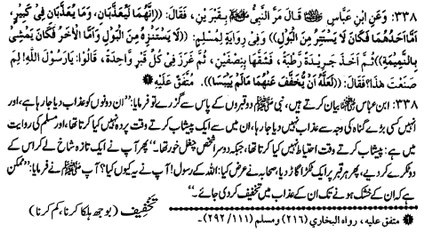 ٣٣٨: وَعَنِ ابْنِ عَبَّاسٍ ﷺ قَالَ مَرَّ النَّبِيُّ ﷺ بِقَبْرَيْنِ، فَقَالَ: ((إِنَّهُمَا لَيُعَذَّبَانِ، وَمَا يُعَذَّبَانِ فِي كَبِيرٍ،
اَمَّا اَحَدُهُمَا فَكَانَ لَا يَسْتَتِرُ مِنَ الْبَوْلِ)) وَفِي رِوَايَةٍ لِمُسْلِمٍ: ((لَا يَسْتَنْزِهُ مِنَ الْبَوْلِ وَاَمَّا الْآخَرُ فَكَانَ يَمْشِي
بِالنَّمِيمَةِ)) ثُمَّ اَخَذَ جَرِيدَةً رَطْبَةً، فَشَقَّهَا بِنِصْفَيْنِ، ثُمَّ غَرَزَ فِي كُلِّ قَبْرٍ وَاحِدَةً، قَالُوا: يَارَسُولَ اللهِ! لِمَ
صَنَعْتَ هٰذَا؟ فَقَالَ: ((لَعَلَّهُ اَنْ يُخَفَّفَ عَنْهُمَا مَالَمْ يَيْبَسَا)). مُتَّفَقٌ عَلَيْهِ ❶
٣٣٨: ابن عباس بیان کرتے ہیں، نبی ﷺ دو قبروں کے پاس سے گزرے تو فرمایا: ”ان دونوں کو عذاب دیا جا رہا ہے، اور
انہیں کسی بڑے گناہ کی وجہ سے عذاب نہیں دیا جا رہا، ان میں سے ایک پیشاب کرتے وقت پردہ نہیں کیا کرتا تھا، اور مسلم کی روایت
میں ہے: پیشاب کرتے وقت احتیاط نہیں کیا کرتا تھا، جبکہ دوسرا شخص چغل خور تھا۔“ پھر آپ نے ایک تازہ شاخ لے کر اس کے
دو ٹکڑے کر دیے، پھر ہر قبر پر ایک ٹکڑا گاڑ دیا، صحابہ نے عرض کیا: اللہ کے رسول! آپ نے یہ کیوں کیا؟ آپ ﷺ نے فرمایا: ”ممکن
ہے کہ ان کے خشک ہونے تک ان کے عذاب میں تخفیف کر دی جائے۔“
تخفیف (بوجھ ہلکا کرنا، کم کرنا)
❶ متفق عليه، رواه البخاري (٢١٦) ومسلم (١١١/٢٩٢)۔